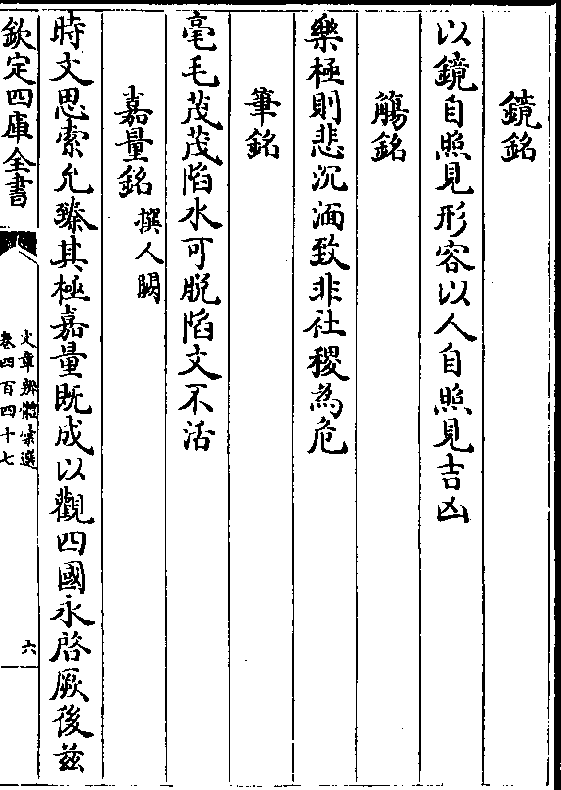 鏡銘
以鏡自照見形容以人自照見吉凶
觴銘
樂極則悲沉湎致非社稷為危
筆銘
毫毛茂茂陷水可脫陷文不活
嘉量銘 撰人闕
時文思索允臻其極嘉量既成以觀四國永啓厥後茲
欽定四庫全書
文章辨體彙選
卷四百四十七
六